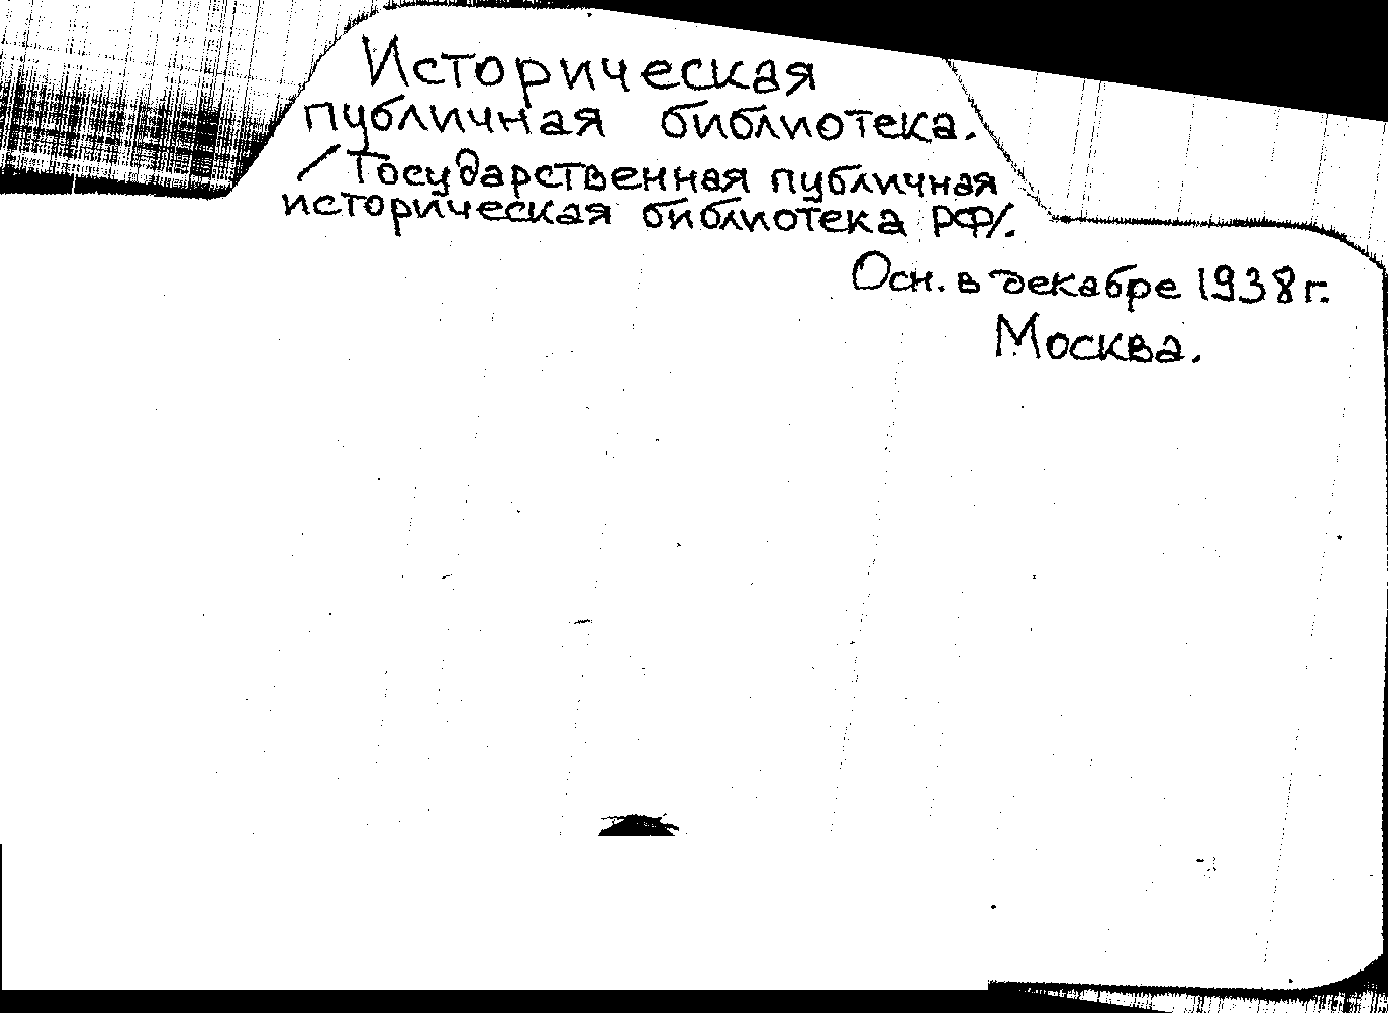 Историческая
публичная библиотека.
/Государственная публичная
историческая библиотека РФ/.
Осн. в декабре 1938 г.
Москва.